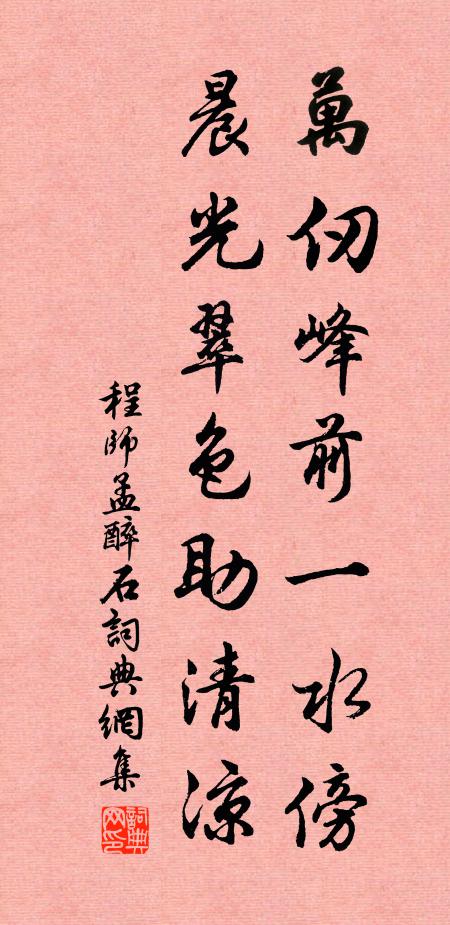 萬仞峰前一水傍
晨光翠色助清涼
程師孟醉石詞典網集
詞典網印